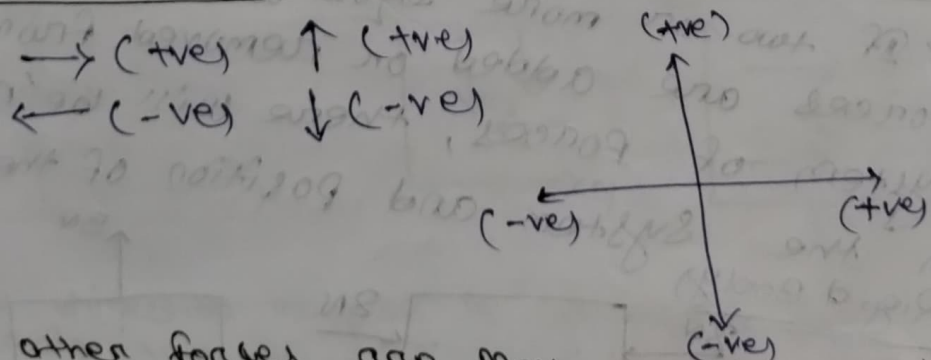 (+ve)
→ (+ve) ↑ (+ve)
← (-ve) ↓ (-ve)
(-ve) (+ve)
(-ve)
other forces are